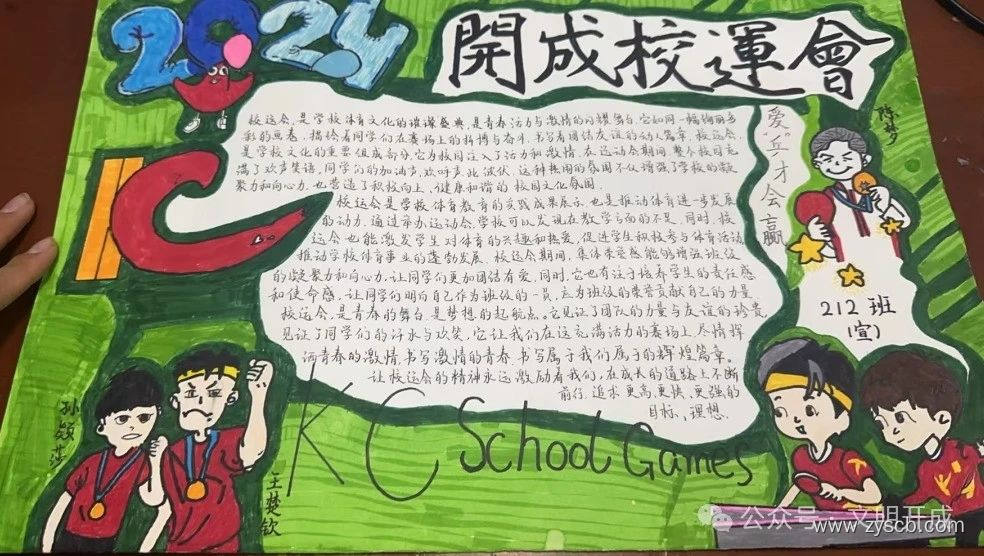 2024
開成校運會
校运会,是学校体育文化的璀璨盛典,是青春活力与激情的闪耀舞台,它如同一幅绚丽多
彩的画卷,描绘着同学们在赛场上的拼搏与奋斗,书写着团结友谊的动人篇章,校运会,
是学校文化的重要组成部分,它为校园注入了活力和激情,在运动会期间,整个校园充
满了欢声笑语,同学们的加油声,欢呼声,此起彼伏,这种热闹的氛围不仅增强了学校的凝
聚力和向心力,也营造了积极向上、健康和谐的校园文化氛围。
校运会是学校体育教育的实践成果展示,也是推动体育进一步发展
的动力,通过举办运动会,学校可以发现在教学方面的不足,同时,校
运会也能激发学生对体育的兴趣和热爱,促进学生积极参与体育活动,
推动学校体育事业的蓬勃发展。校运会期间,集体荣誉感能够增强班级
的凝聚力和向心力,让同学们更加团结有爱,同时,它也有注于培养学生的责任感
和使命感,让同学们明白自己作为班级的一员,应为班级的荣誉贡献自己的力量
校运会,是青春的舞台,是梦想的起航点。它见证了团队的力量与友谊的珍贵,
见证了同学们的汗水与欢笑,它让我们在这充满活力的赛场上,尽情挥
洒青春的激情,书写激情的青春,书写属于我们属于的辉煌篇章。
让校运会的精神永远激励着我们,在成长的道路上不断
前行,追求更高、更快、更强的
目标、理想.
爱“乒”才会赢
陈梦
212班
(宣)
孙颖莎
王楚钦
KC School Games
公众号·文明开成
www.zyscbl.com